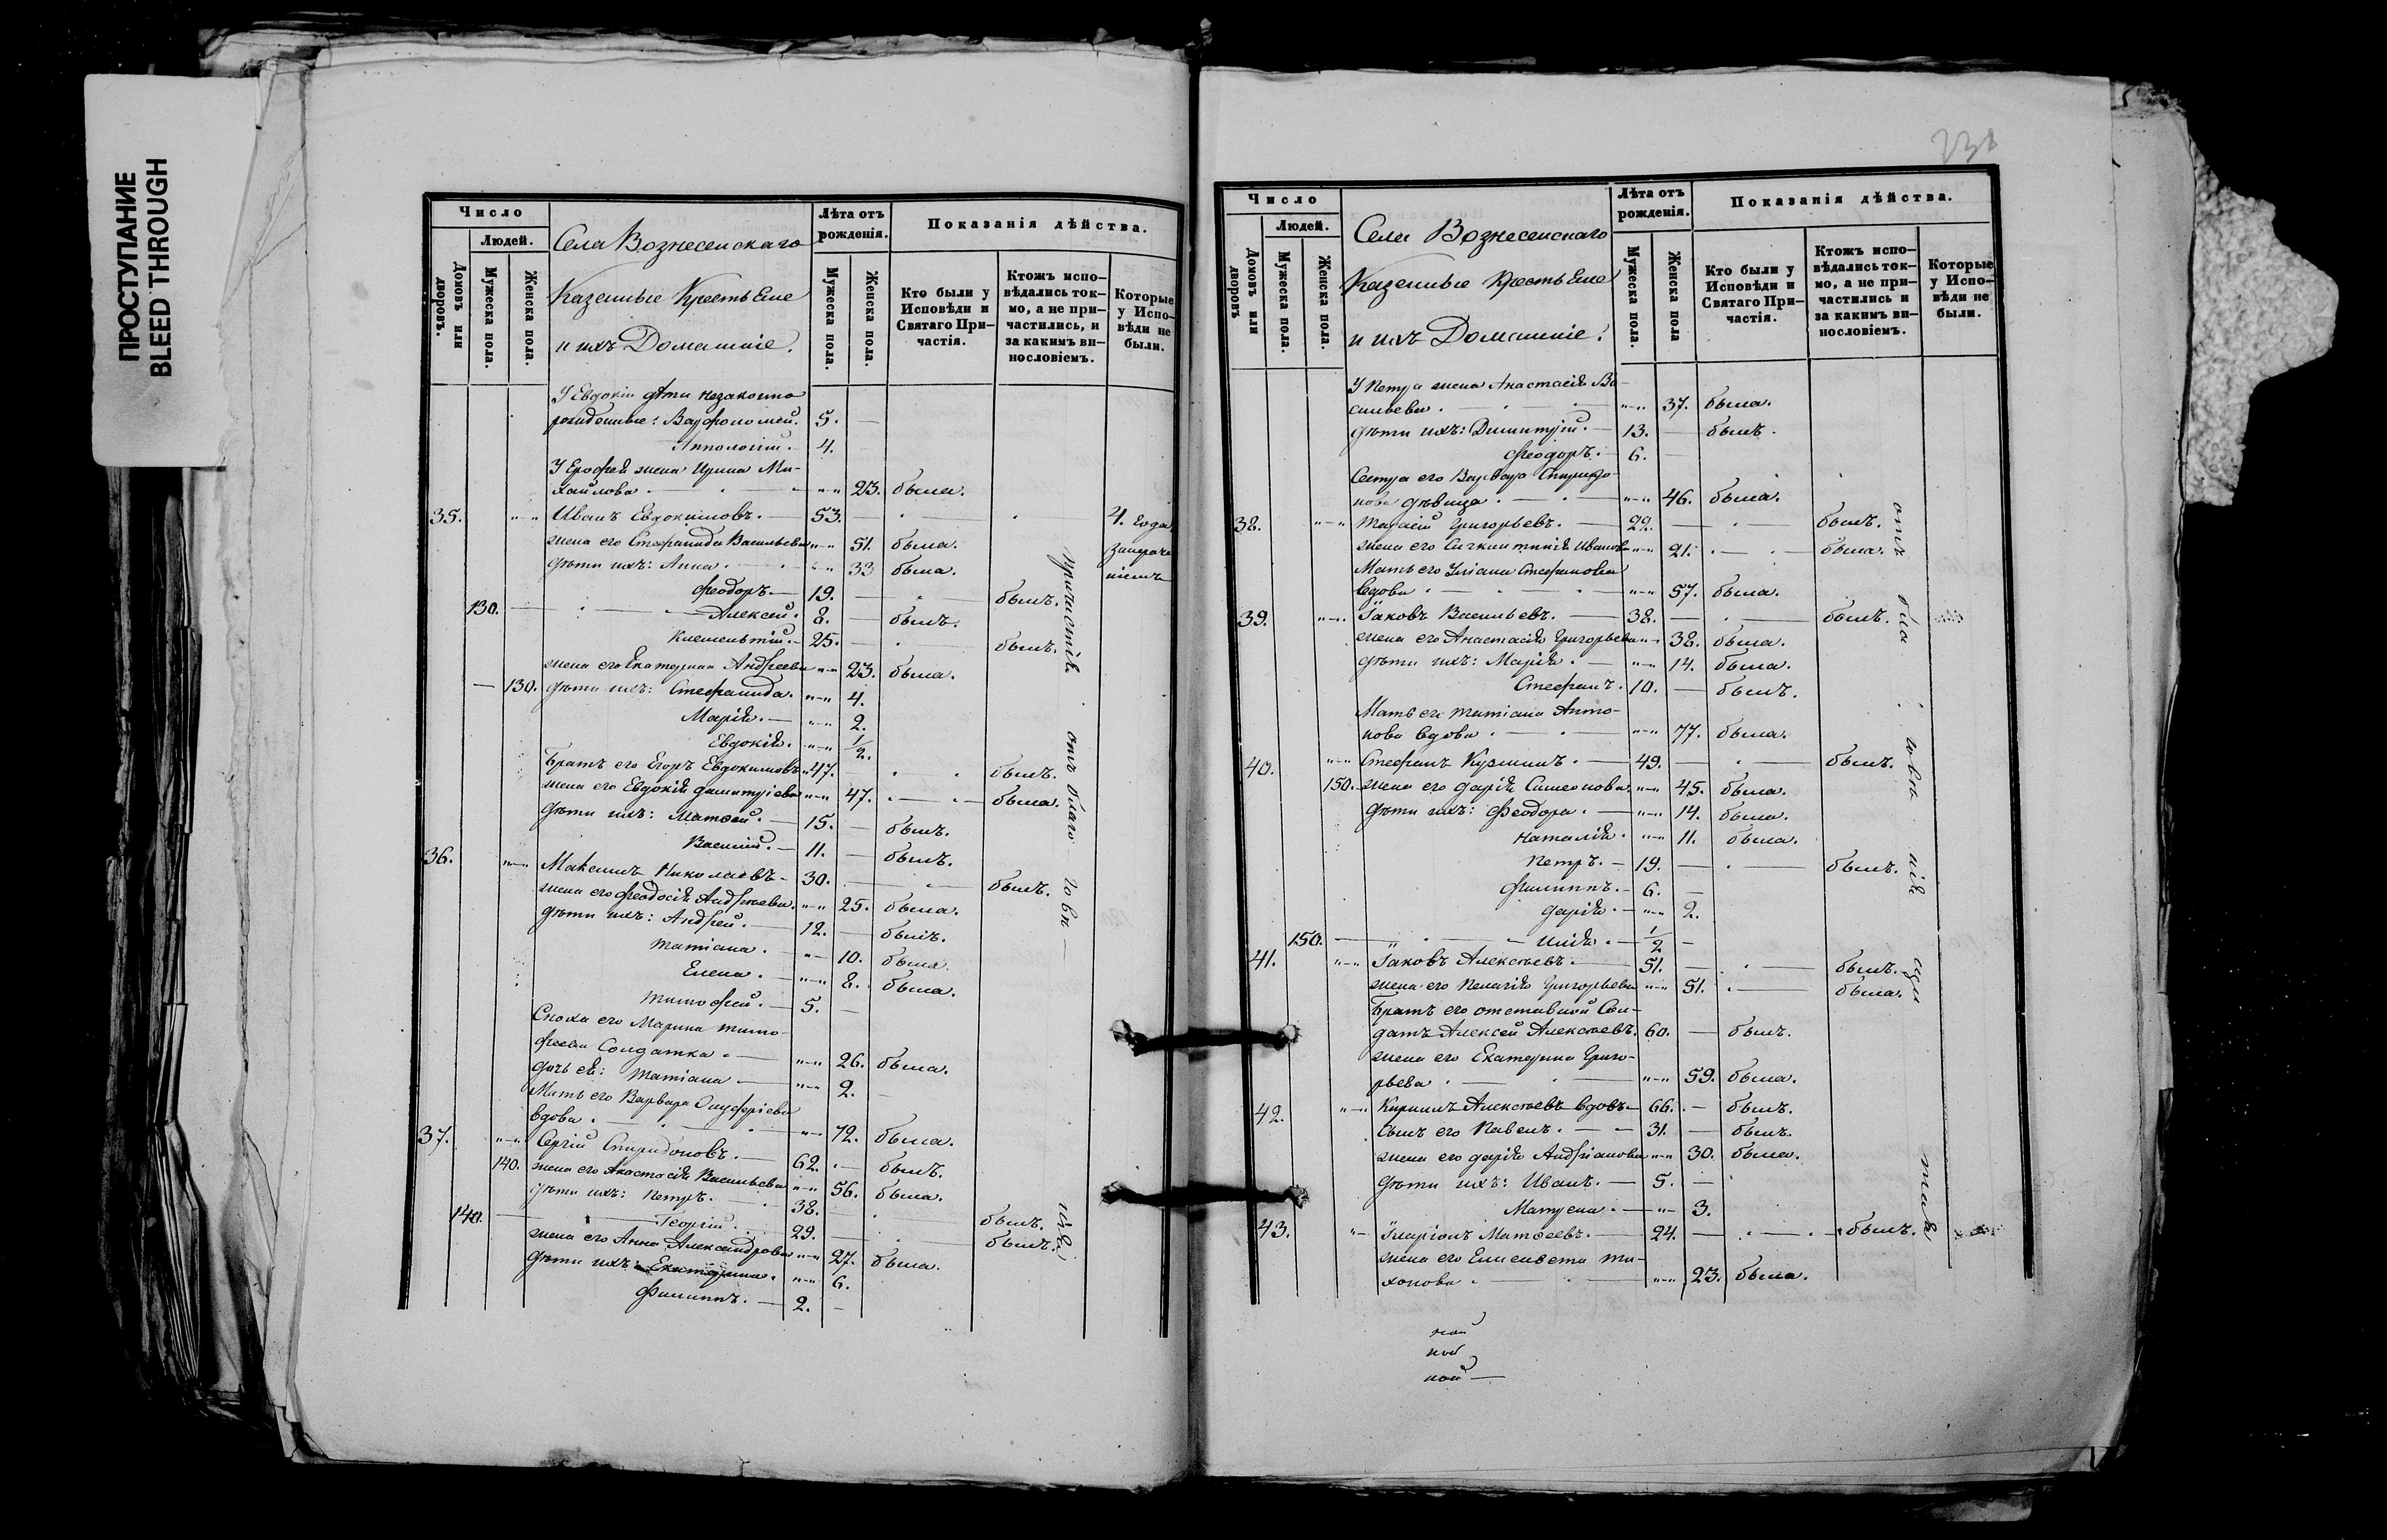 ПРОСТУПАНИЕ
BLEED THROUGH
Число
Людей.
Домовъ или дворовъ.
Мужеска пола.
Женска пола.
Села Вознесенскаго
Казенные Крестьяне
и ихъ Домашніе.
Лѣта отъ рожденія.
Мужеска пола.
Женска пола.
Показанія дѣйства.
Кто были у Исповѣди и Святаго Причастія.
Ктожъ исповѣдались токмо, а не причастились, и за какимъ винословіемъ.
Которые у Исповѣди не были.
У Евдокіи дѣти незаконно
рожденные: Варфоломей. 5. —
Аппологій. 4.
У Ерофея жена Ирина Ми-
хайлова 23. была.
35. Иванъ Евдокимовъ. 53. 4. года
жена его Стефанида Васильева 51. была.
дѣти ихъ: Анна. 33 была.
Феодоръ. 19. — былъ.
130. Алексей. 8. — былъ.
Клементій. 25. былъ.
жена его Екатерина Андреева 23. была.
130. дѣти ихъ: Стефанида. 4.
Марія. 2.
Евдокія. 1/2.
Братъ его Егоръ Евдокимовъ 47. былъ.
жена его Евдокія Димитріева 47. была.
дѣти ихъ: Матѳей. 15. — былъ.
Василій. 11. — былъ.
36. Максимъ Николаевъ 30. былъ.
жена его Феодосія Андреева. 25. была.
дѣти ихъ: Андрей. 12. — былъ.
Татіана. 10. была.
Елена. 8. была.
Тимофей. 5. —
Сноха его Марина Тимо-
феева Солдатка. 26. была.
дочь ея: Татіана 2. —
Мать его Варвара Онуфріева
вдова. 72. была.
37. Сергій Спиридоновъ. 62. былъ.
140. жена его Анастасія Васильева 56. была.
дѣти ихъ: Петръ. 38. былъ.
140. Георгій. 29. былъ.
жена его Анна Александрова 27. была.
дѣти ихъ: Екатерина. 6.
Филиппъ. 2. —
причастія отъ благо говѣ нія
Число
Людей.
Домовъ или дворовъ
Мужеска пола.
Женска пола.
Села Вознесенскаго
Казенные Крестьяне
и ихъ Домашніе.
Лѣта отъ рожденія.
Мужеска пола.
Женска пола
Показанія дѣйства.
Кто были у Исповѣди и Святаго Причастія.
Ктожъ исповѣдались токмо, а не причастились и за какимъ винословіемъ.
Которые у Исповѣди не были.
У Петра жена Анастасія Ва-
сильева. 37. была.
дѣти ихъ: Димитрій. 13. — былъ.
Феодоръ. 6. —
Сестра его Варвара Спиридо-
нова дѣвица. 46. была.
38. Тарасій Григорьевъ. 22. — былъ.
жена его Синклитикія Иванова 21. была.
Мать его Уліана Стефанова
вдова 57. была.
39. Іаковъ Васильевъ. 38. былъ.
жена его Анастасія Григорьева 38. была.
дѣти ихъ: Марія. 14. была.
Стефанъ. 10. — былъ.
Мать его Татіана Анто-
нова вдова. 77. была.
40. Стефанъ Кузминъ. 49. былъ.
150. жена его Дарія Симеонова. 45. была.
дѣти ихъ: Феодора. 14. была.
Наталія. 11. была.
Петръ. 19. — былъ.
Филиппъ. 6. —
Дарія. 2.
150. Илія. 1/2 —
41. Іаковъ Алексѣевъ. 51. былъ.
жена его Пелагія Григорьева 51. была.
Братъ его отставной Сол-
датъ Алексей Алексѣевъ. 60. — былъ.
жена его Екатерина Григо-
рьева. 59. была.
42. Кириллъ Алексѣевъ вдовъ 66. — былъ.
Сынъ его Павелъ. 31. — былъ.
жена его Дарія Андріанова 30. была.
дѣти ихъ: Иванъ. 5. —
Матрена. 3.
43. Иларіонъ Матѳеевъ. 24. былъ.
жена его Елисавета Ти-
хонова. 23. была.
отъ бла говѣ нія
ной
ной
ной